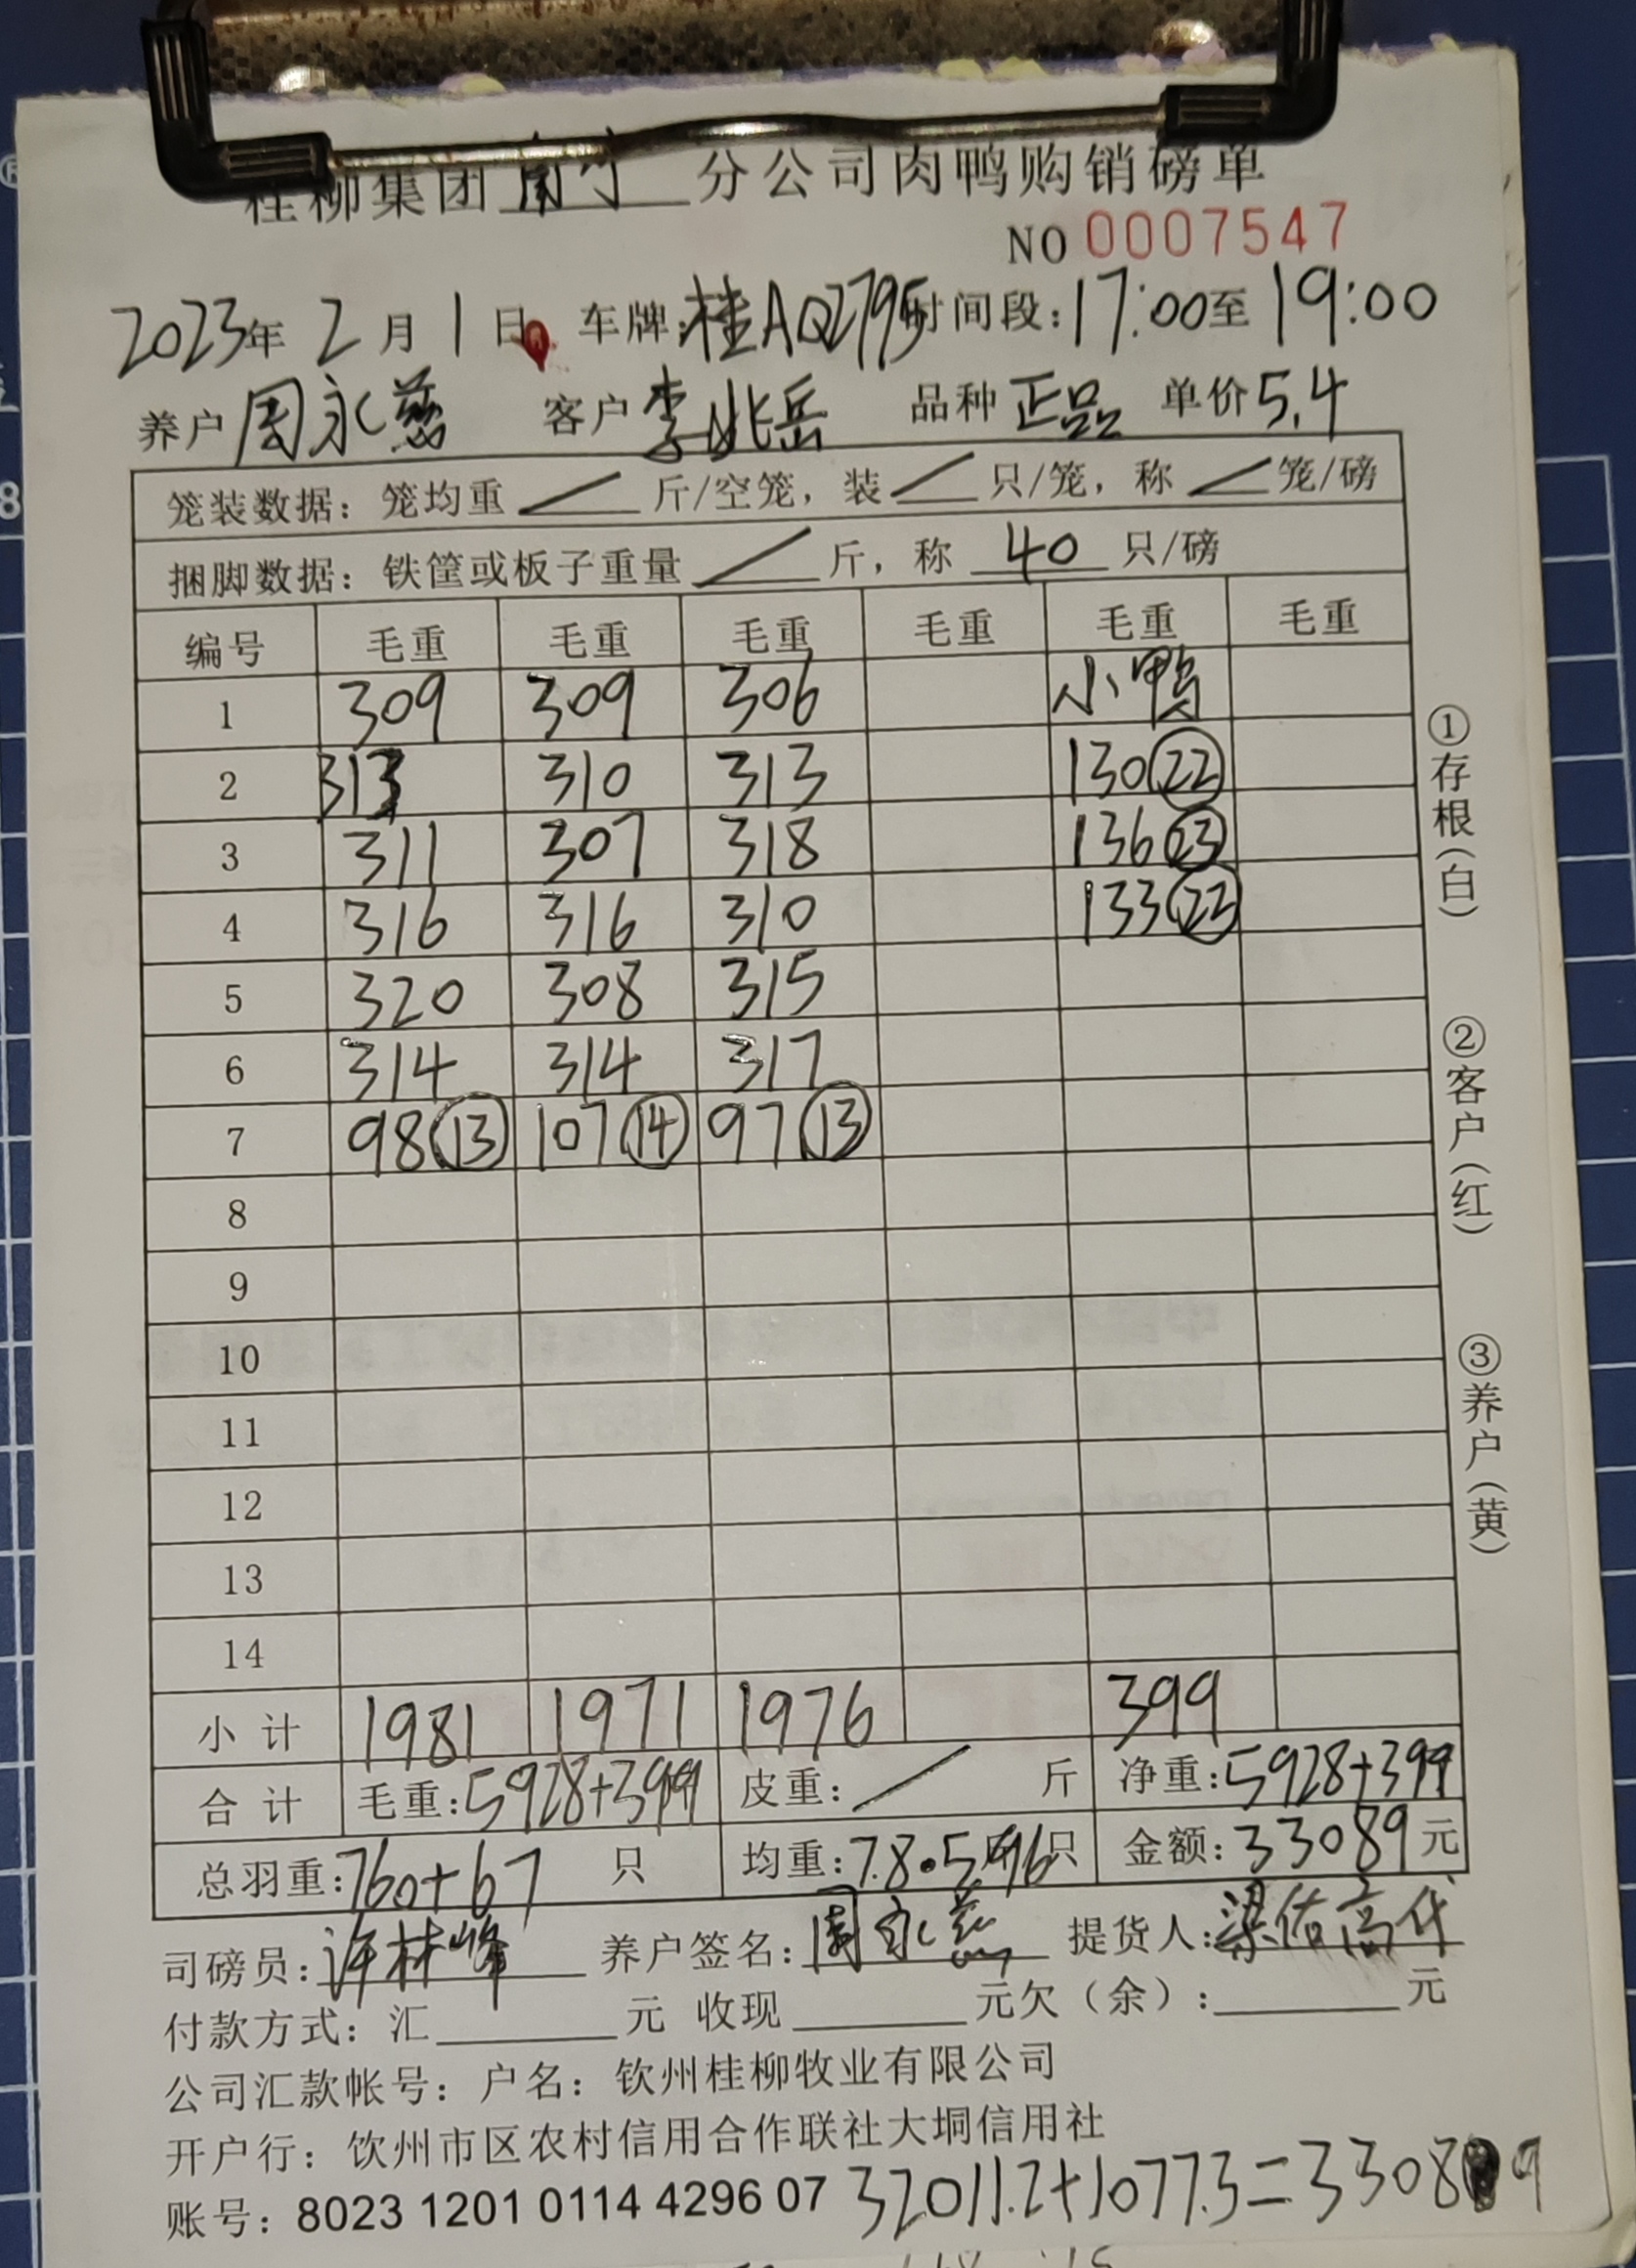 桂柳集团南宁分公司肉鸭购销磅单
NO 0007547
2023年 2月 1日 车牌:桂AQ2795 时间段:17:00至19:00
养户 周永慈 客户 李兆岳 品种 正品 单价5.4
笼装数据: 笼均重 / 斤/空笼, 装 / 只/笼, 称 / 笼/磅
捆脚数据: 铁筐或板子重量 / 斤, 称 40 只/磅
编号 毛重 毛重 毛重 毛重 毛重 毛重
1 309 309 306 小鸭
2 313 310 313 130(22)
3 311 307 318 136(23)
4 316 316 310 133(22)
5 320 308 315
6 314 314 317
7 98(13) 107(14) 97(13)
8
9
10
11
12
13
14
小计 1981 1971 1976 399
合计 毛重:5928+399 皮重: / 斤 净重:5928+399
总羽重:760+67 只 均重:7.8 5.96只 金额:33089元
司磅员:许林峰 养户签名:周永慈 提货人:梁佑高代
付款方式: 汇 元 收现 元欠(余): 元
公司汇款帐号: 户名: 钦州桂柳牧业有限公司
开户行: 钦州市区农村信用合作联社大垌信用社
账号: 8023 1201 0114 4296 07 32011.2+1077.3=33089
①存根(白)
②客户(红)
③养户(黄)